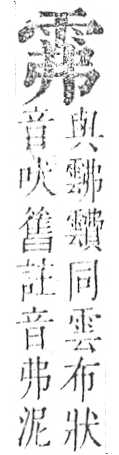 與靅同雲布狀
音吠舊註音弗泥